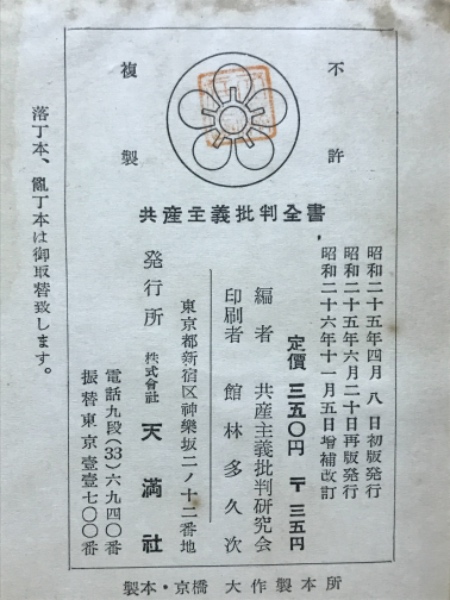 不許
複製
共産主義批判全書
昭和二十五年四月 八 日初版発行
昭和二十五年六月二十日再版発行
昭和二十六年十一月五日增補改訂
定價 三五〇円 〒 三五円
編者 共産主義批判研究会
印刷者 館林多久次
東京都新宿区神樂坂二ノ十二番地
発行所 株式會社 天満社
電話九段(33)六九四〇番
振替東京壹壹七〇〇番
落丁本、亂丁本は御取替致します。
製本・京橋 大作製本所